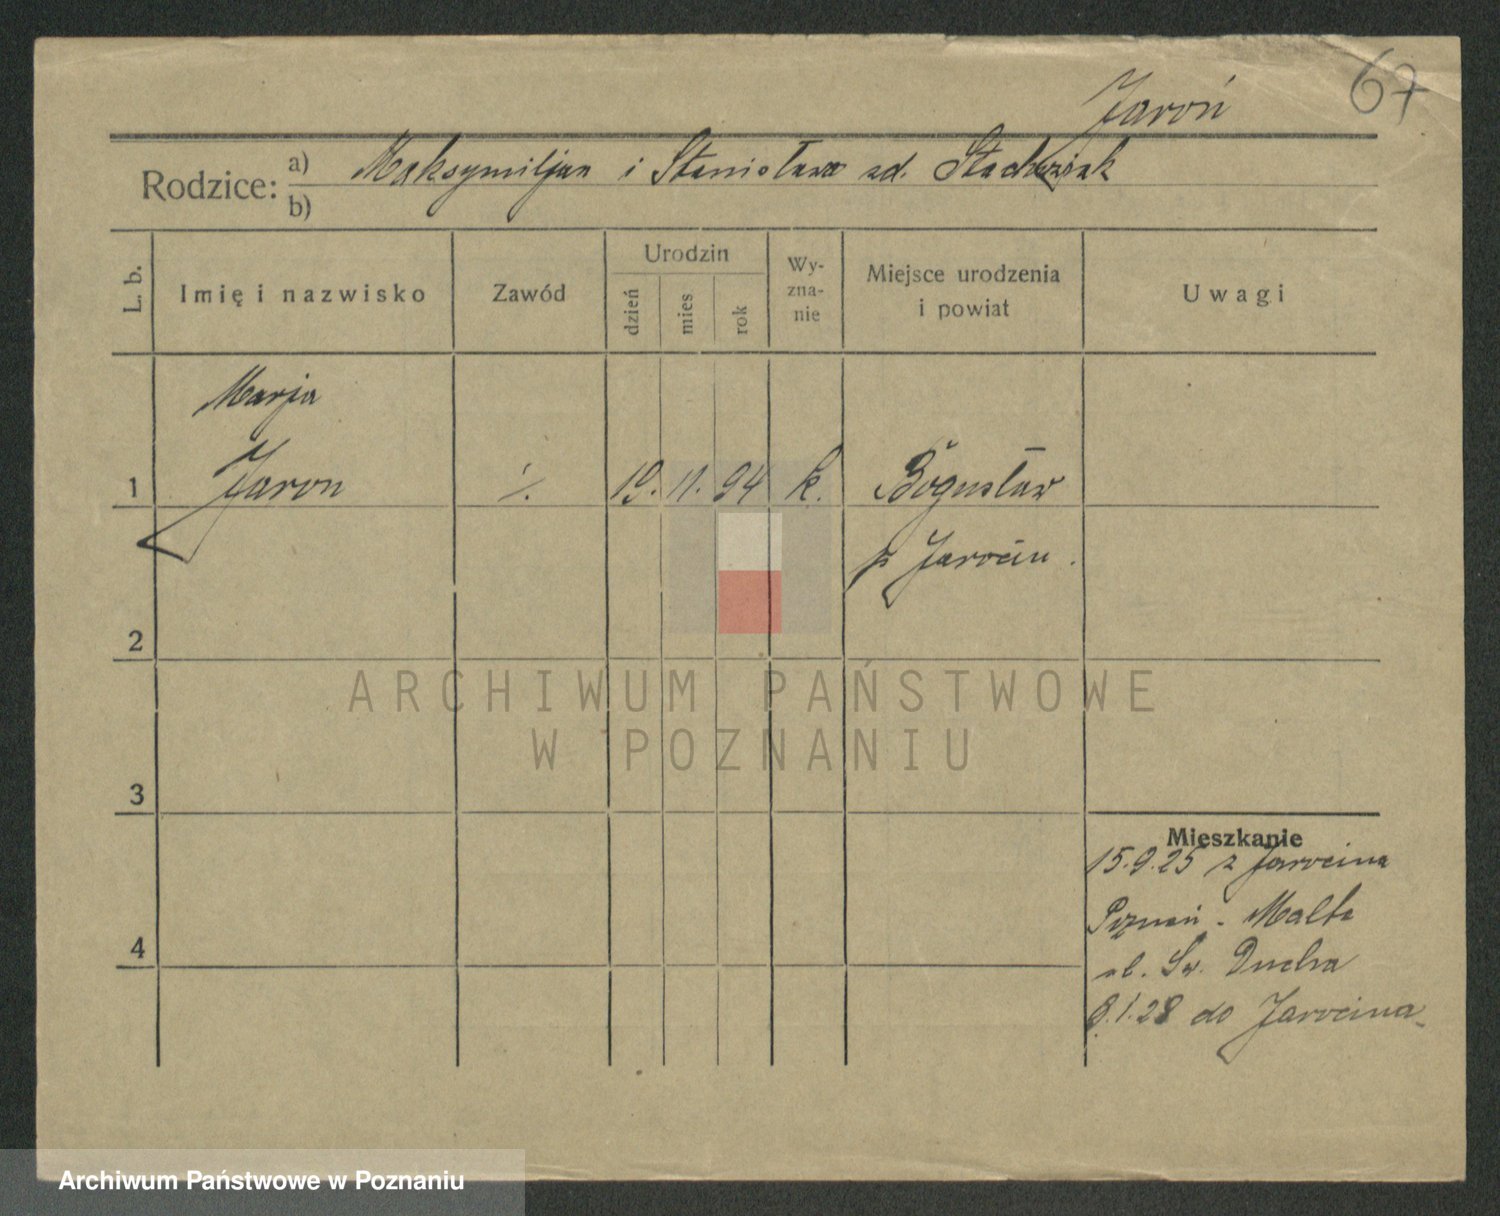 67
Jaroń
Rodzice: a) Maksymiljan i Stanisława ad. Stachwiak
b)
L. b. Imię i nazwisko Zawód Urodzin dzień mies rok Wyznanie Miejsce urodzenia i powiat Uwagi
Marja
1 Jaron ·/. 19. 11. 94 k. Bogusław
p Jarocin.
2
ARCHIWUM PAŃSTWOWE
W POZNANIU
3
Mieszkanie
15.9.25 z Jarocina
Poznań - Malta
4
ul. Św. Ducha
9.1.28 do Jarocina
Archiwum Państwowe w Poznaniu